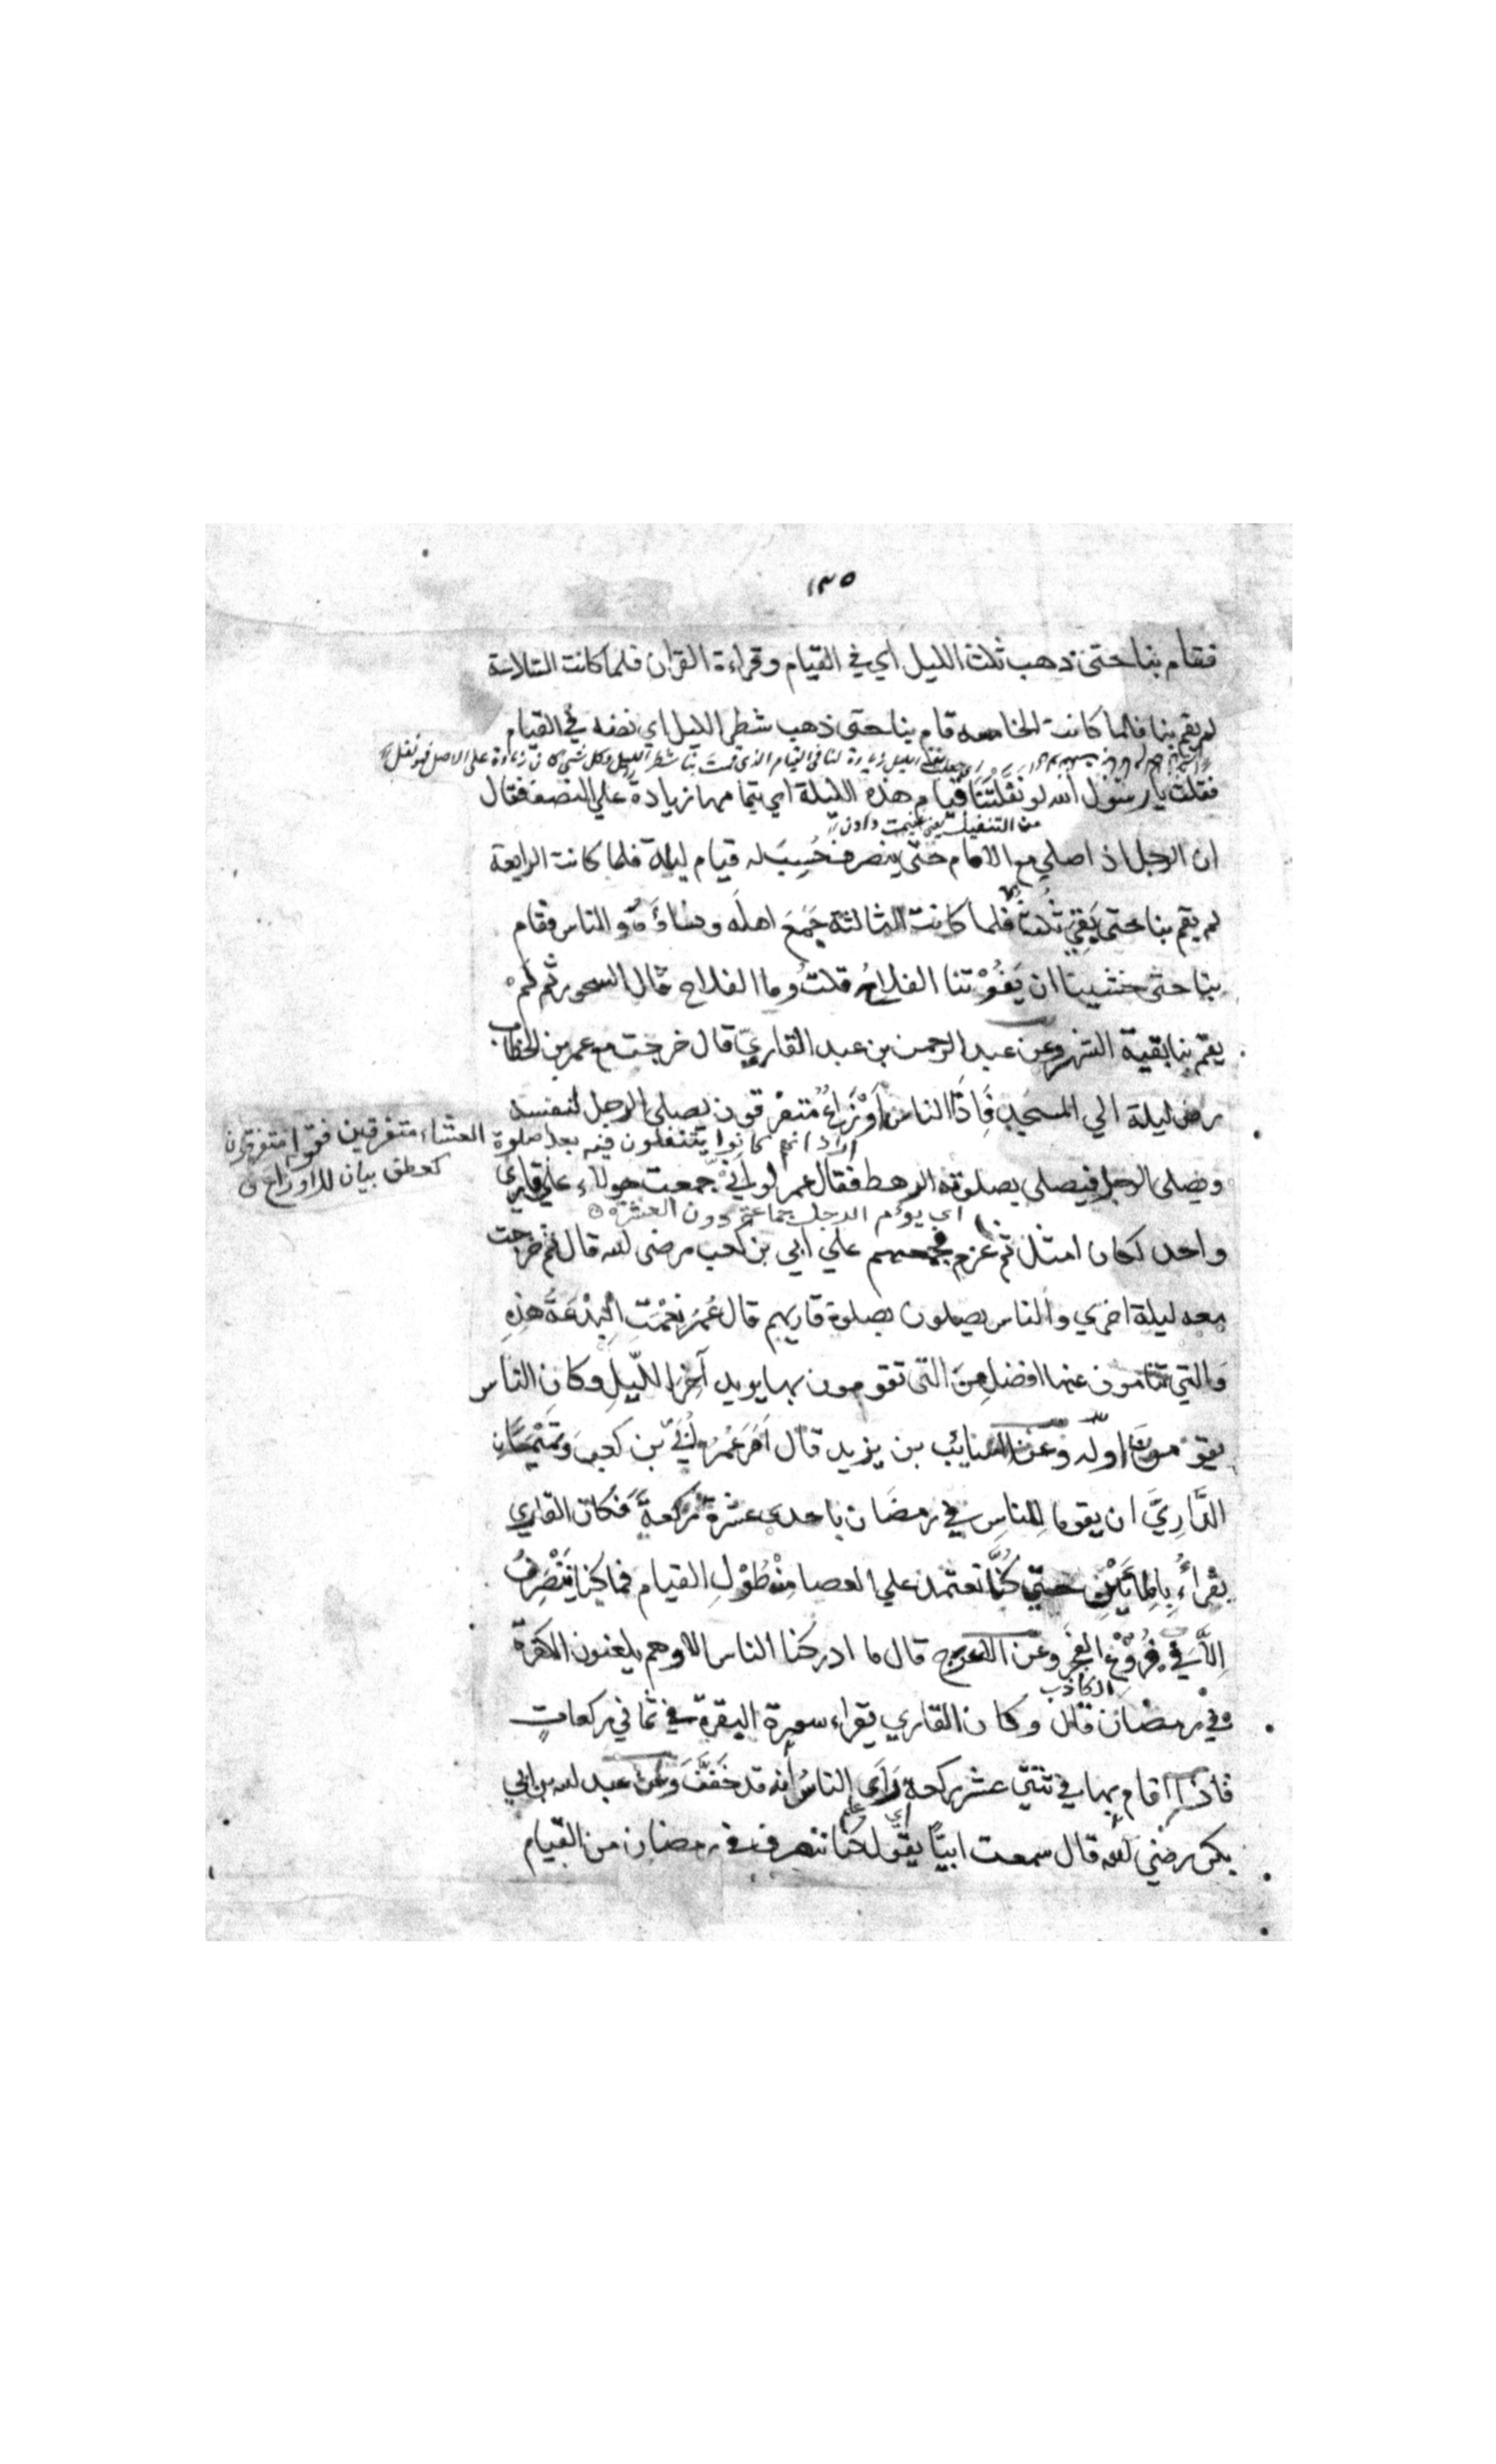 ١٣٥
فقام بنا حتى ذهب ثلث الليل اي في القيام وقراءة القران فلما كانت السادسة
لم يقم بنا فلما كانت الخامسه قام بنا حتى ذهب شطر الليل اي نصفه في القيام
الليل زيادة لنا في القيام الذي قمت بنا شطر الليل وكل شئ كان زيادة على الاصل فهو نفل
فقلت يا رسول الله لو نَفَّلْتَنَا قيام هذه الليلة اي زيادة علي النصف فقال
من التنفيل
ان الرجل اذا صلي مع الامام حتى ينصرف حُسِبَ له قيام ليلة فلما كانت الرابعة
لم يقم بنا حتى بَقِيَ ثُلثٌ فلما كانت الثالثة جَمَعَ اهله ونساؤه والناس فقام
بنا حتى خشينا ان يَفُوْتنا الفلاحُ قلتُ وما الفلاح قال السحور ثم لم
يقم بنا بقية الشهر وعن عبد الرحمن بن عبد القاريّ قال خرجت مع عمر بن الخطاب
رض ليلة الي المسجد فَاِذَا الناس اَوْزَاعٌ متفرقون يصلي الرجل لنفسه
اراد انهم كانوا يتنفلون فيه بعد صلوة العشاء متفرقين فقوله متفرقون
كعطف بيان للاوزاع
ويصلي الرجل فيصلي بصلوته الرهط فقال عمر لو اَنِّيْ جمعت هولاء علي قاري
اي يوم الرجل جماعة دون العشرة
واحد لكان امثل ثم عزم فجمعهم علي ابي بن كعب رضى لله قال ثم خرجت
معه ليلة اخري والناس يصلون بصلوة قاريهم قال عُمرُ نِعْمَتِ الْبِدْعَةُ هٰذِهِ
والتي تنامون عنها افضل مِنَ التي تقومون بها يريد آخِرَ اللّيلِ وكان الناس
يقومون اوله وعَن السائب بن يزيد قال اَمَرَ عُمَرُ اُبَيَّ بن كعب وتَمِيْمَان
الدَّارِيَّ ان يقوما للناس في رمضَان باحدى عشرة ركعةً فكان القاري
يقراءُ بِالمائَيْنِ حتى كُنَّا نعتمد علي العصا مِنْ طُوْلِ القيام فما كنا نَنْصَرِفُ
اِلاَّ فِيْ فُرُوْعِ الفجر وعَن الاعرج قال ما ادركنا الناس الا وهم يلعنون الكفرة
الكاذب
في رمضان قال وكان القاري يقراء سورة البقرة في ثماني ركعاتٍ
فاذا اقام بها في ثنتي عشر ركعة رَاَى الناسُ اَنه قد خَفَّفَ وعَن عبد لله بن ابي
بكر رضي لله قال سمعت ابيّا يقول كنا ننصرف في رمضان من القيام